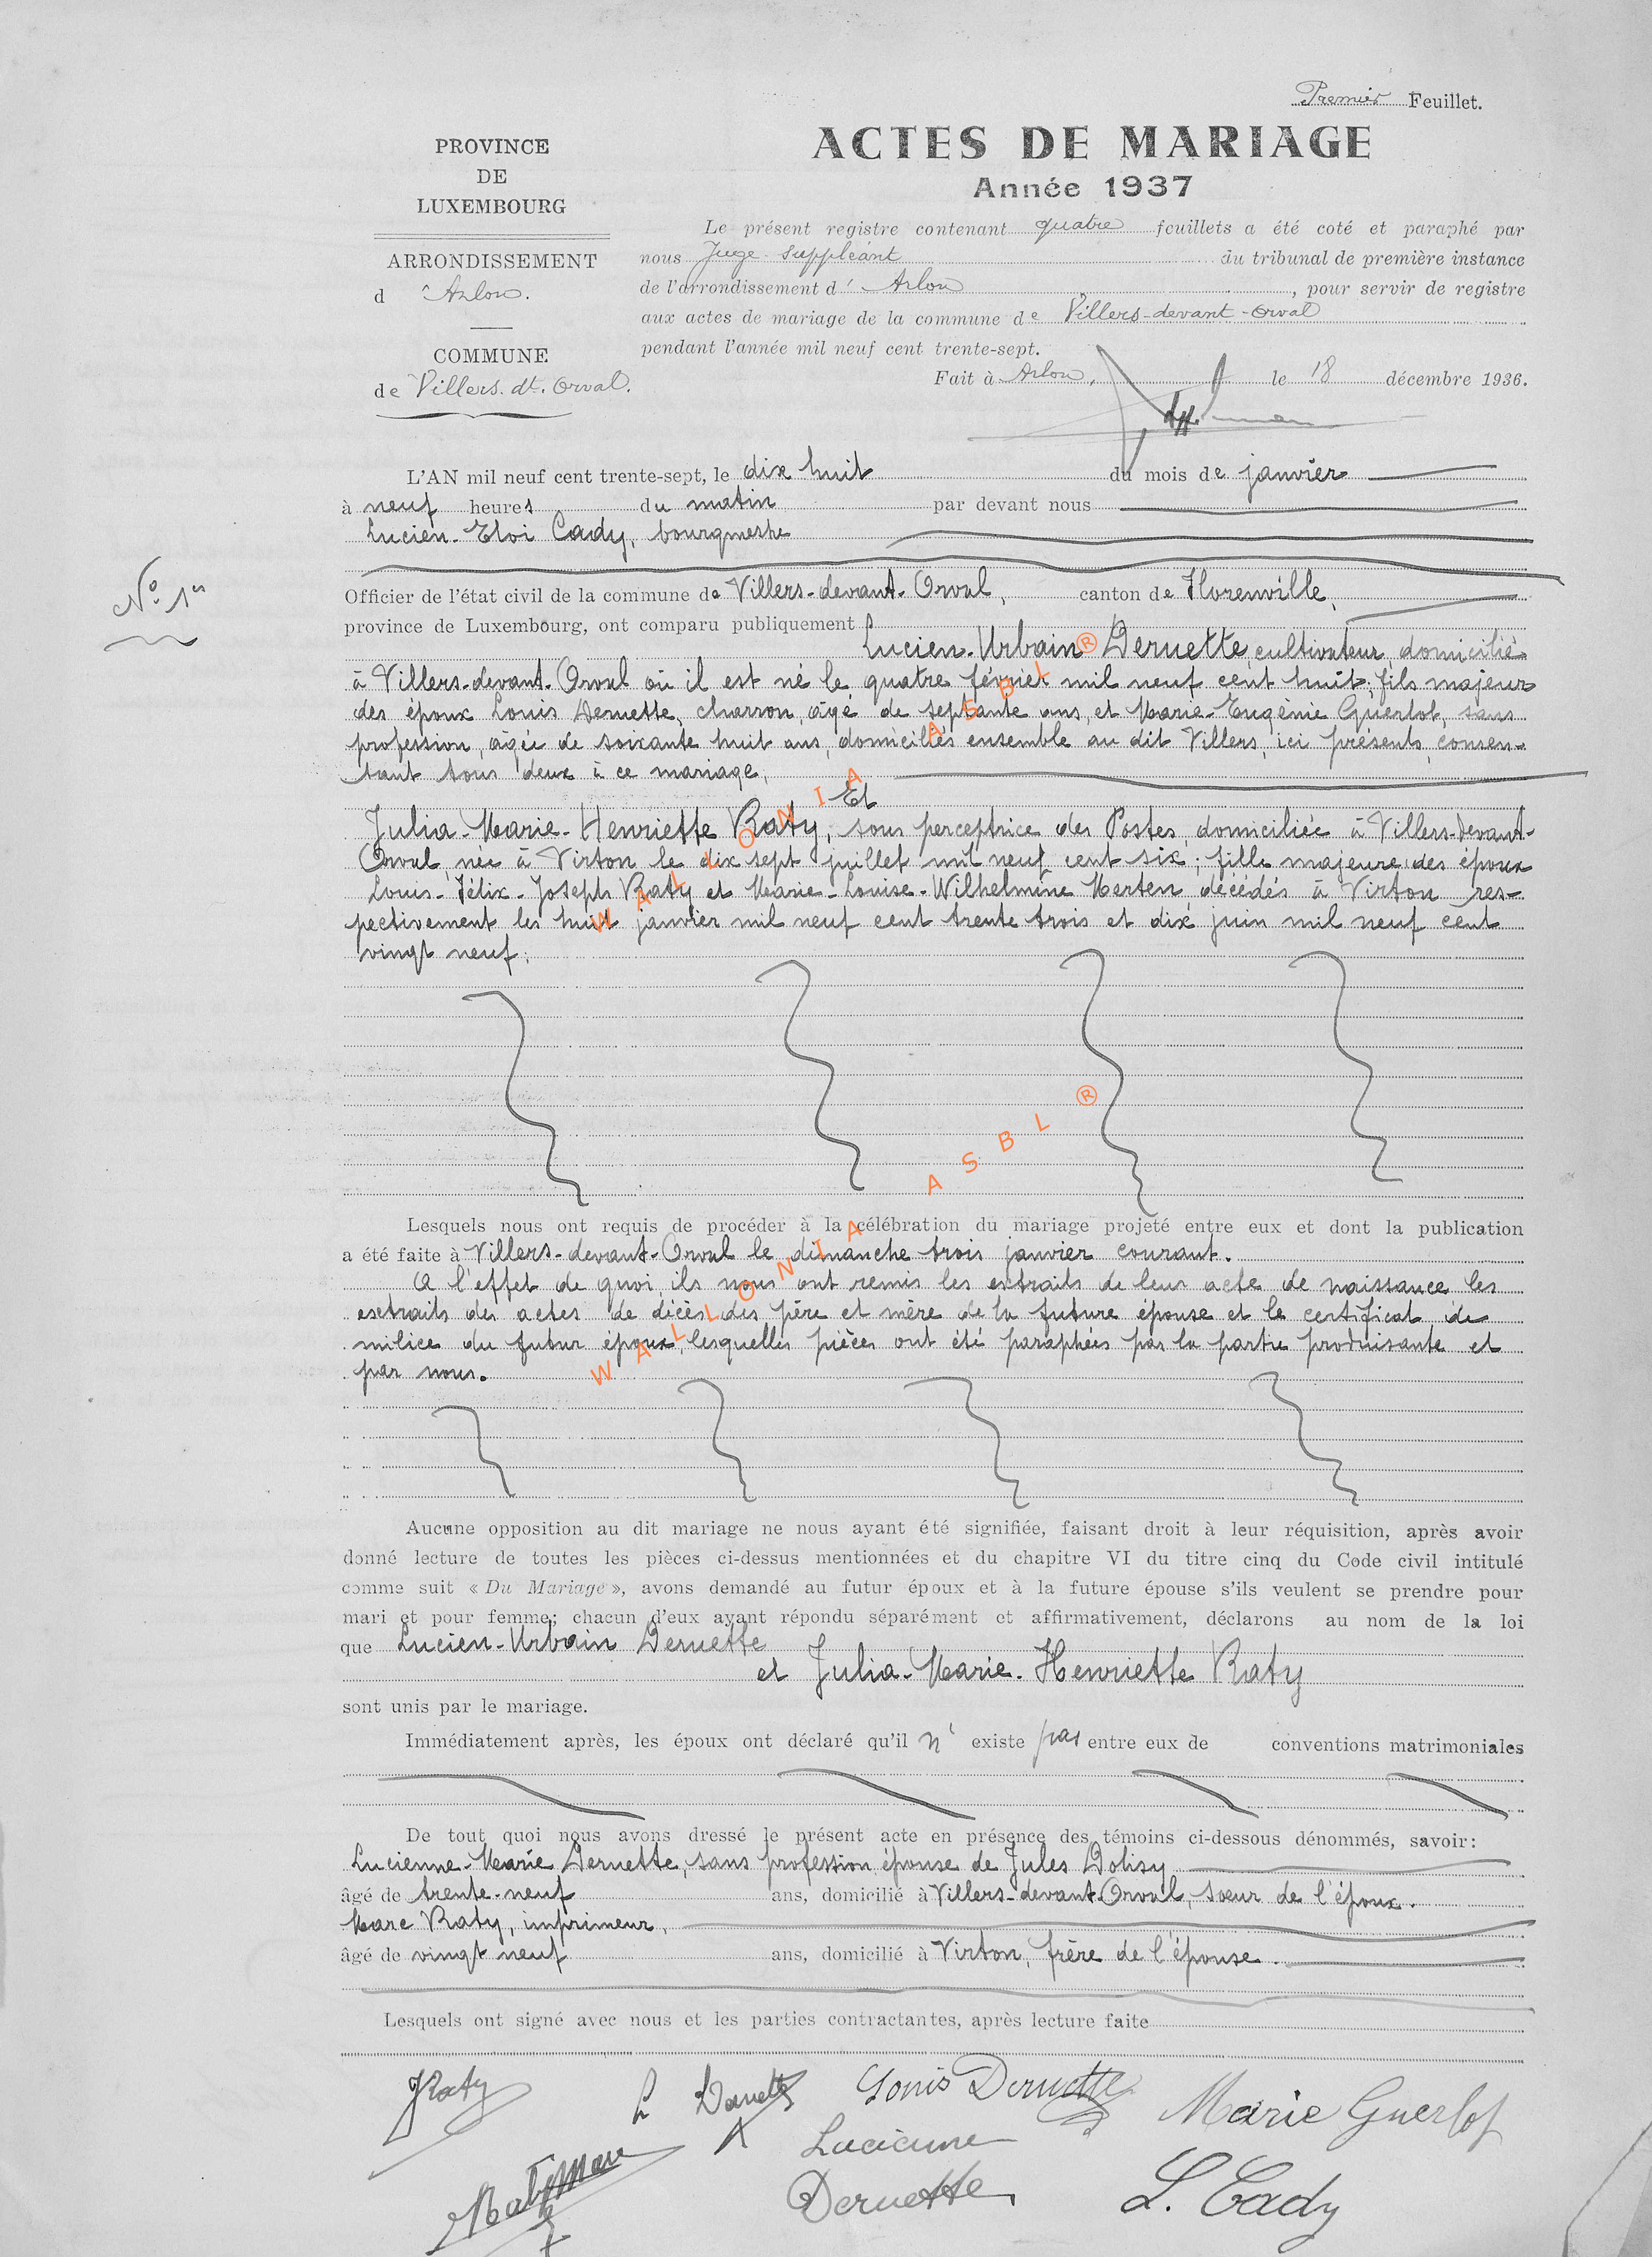 Premier Feuillet.
PROVINCE
DE
LUXEMBOURG
ARRONDISSEMENT
d'Arlon.
COMMUNE
de Villers. dt. Orval.
ACTES DE MARIAGE
Année 1937
Le présent registre contenant quatre feuillets a été coté et paraphé par
nous Juge suppléant du tribunal de première instance
de l'arrondissement d' Arlon, pour servir de registre
aux actes de mariage de la commune de Villers-devant-Orval
pendant l'année mil neuf cent trente-sept.
Fait à Arlon, le 18 décembre 1936.
L'AN mil neuf cent trente-sept, le dix huit du mois de janvier
à neuf heures du matin par devant nous
Lucien-Eloi Cady, bourgmestre
No 1er
Officier de l'état civil de la commune de Villers-devant-Orval, canton de Florenville,
province de Luxembourg, ont comparu publiquement
Lucien-Urbain Deruette, cultivateur, domicilié
à Villers-devant-Orval où il est né le quatre février mil neuf cent huit; fils majeur
des époux Louis Deruette, charron, âgé de septante ans, et Marie-Eugénie Guerlot, sans
profession, âgée de soixante huit ans, domiciliés ensemble au dit Villers, ici présents, consen-
tant tous deux à ce mariage,
Et
Julia-Marie-Henriette Raty, sous perceptrice des Postes, domiciliée à Villers-devant-
Orval, née à Virton le dix sept juillet mil neuf cent six; fille majeure des époux
Louis-Félix-Joseph Raty et Marie-Louise-Wilhelmine Merten, décédés à Virton res-
pectivement les huit janvier mil neuf cent trente trois et dix juin mil neuf cent
vingt neuf.
Lesquels nous ont requis de procéder à la célébration du mariage projeté entre eux et dont la publication
a été faite à Villers-devant-Orval le dimanche trois janvier courant.
A l'effet de quoi, ils nous ont remis les extraits de leur acte de naissance les
extraits des actes de décès des père et mère de la future épouse et le certificat de
milice du futur époux, lesquelles pièces ont été paraphées par la partie produisante et
par nous.
Aucune opposition au dit mariage ne nous ayant été signifiée, faisant droit à leur réquisition, après avoir
donné lecture de toutes les pièces ci-dessus mentionnées et du chapitre VI du titre cinq du Code civil intitulé
comme suit « Du Mariage », avons demandé au futur époux et à la future épouse s'ils veulent se prendre pour
mari et pour femme; chacun d'eux ayant répondu séparément et affirmativement, déclarons au nom de la loi
que Lucien-Urbain Deruette
et Julia-Marie-Henriette Raty
sont unis par le mariage.
Immédiatement après, les époux ont déclaré qu'il n' existe pas entre eux de conventions matrimoniales
De tout quoi nous avons dressé le présent acte en présence des témoins ci-dessous dénommés, savoir:
Lucienne-Marie Deruette, sans profession, épouse de Jules Dolisy
âgé de trente-neuf ans, domicilié à Villers-devant-Orval, sœur de l'époux.
Marc Raty, imprimeur,
âgé de vingt neuf ans, domicilié à Virton, frère de l'épouse.
Lesquels ont signé avec nous et les parties contractantes, après lecture faite
JRaty
L Deruette
Louis Deruette
Marie Guerlot
Raty Marc
Lucienne
Deruette
L. Cady
WALLONIA ASBL ®
WALLONIA ASBL ®